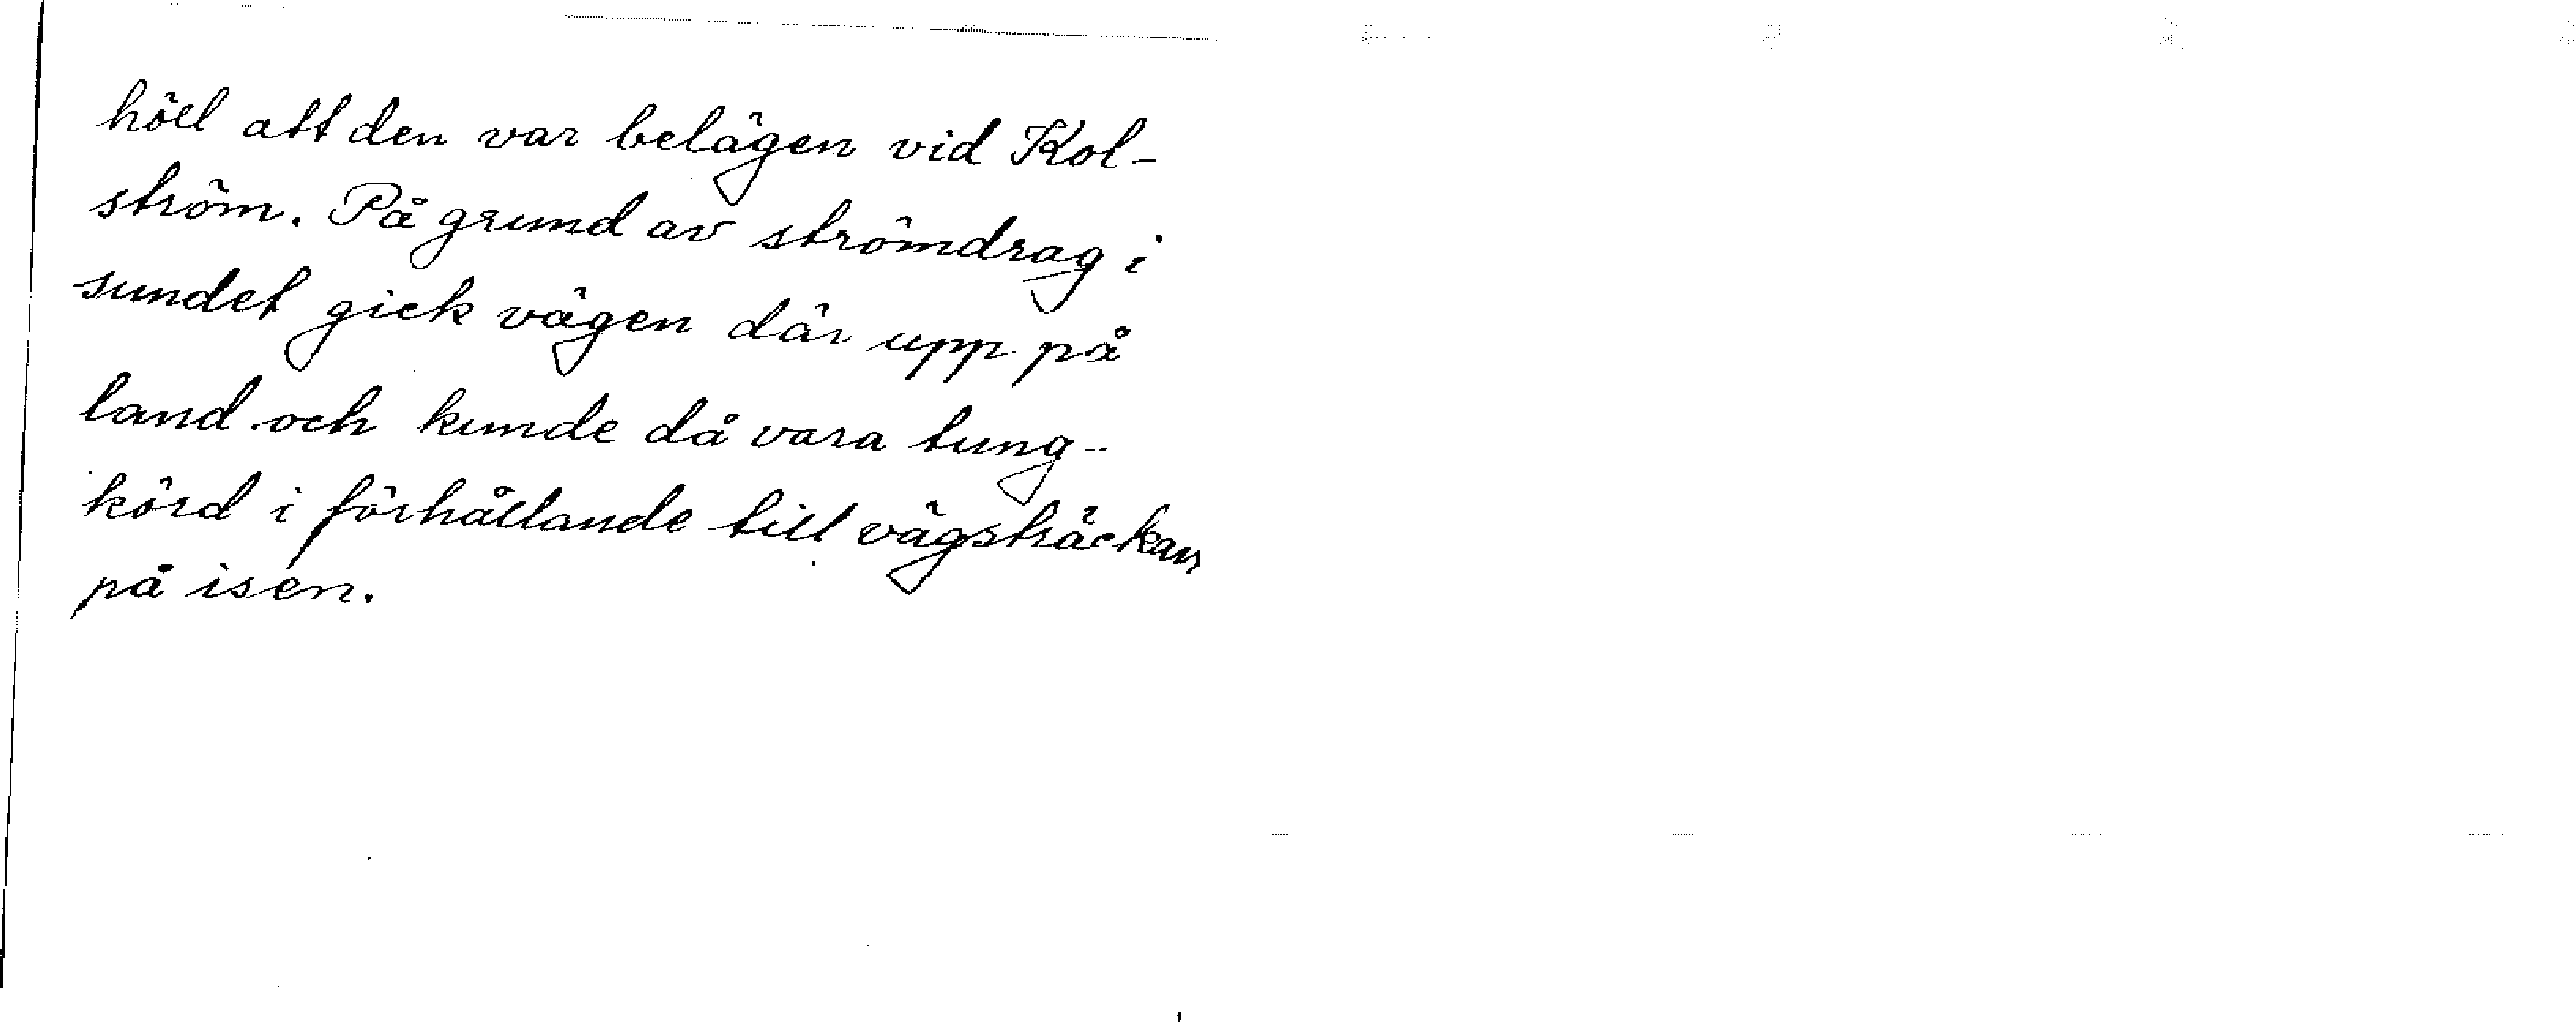 höll att den var belägen vid Kol-
ström. På grund av strömdrag i
sundet gick vägen där upp på
land och kunde då vara tung-
körd i förhållande till vägsträckan
på isen.